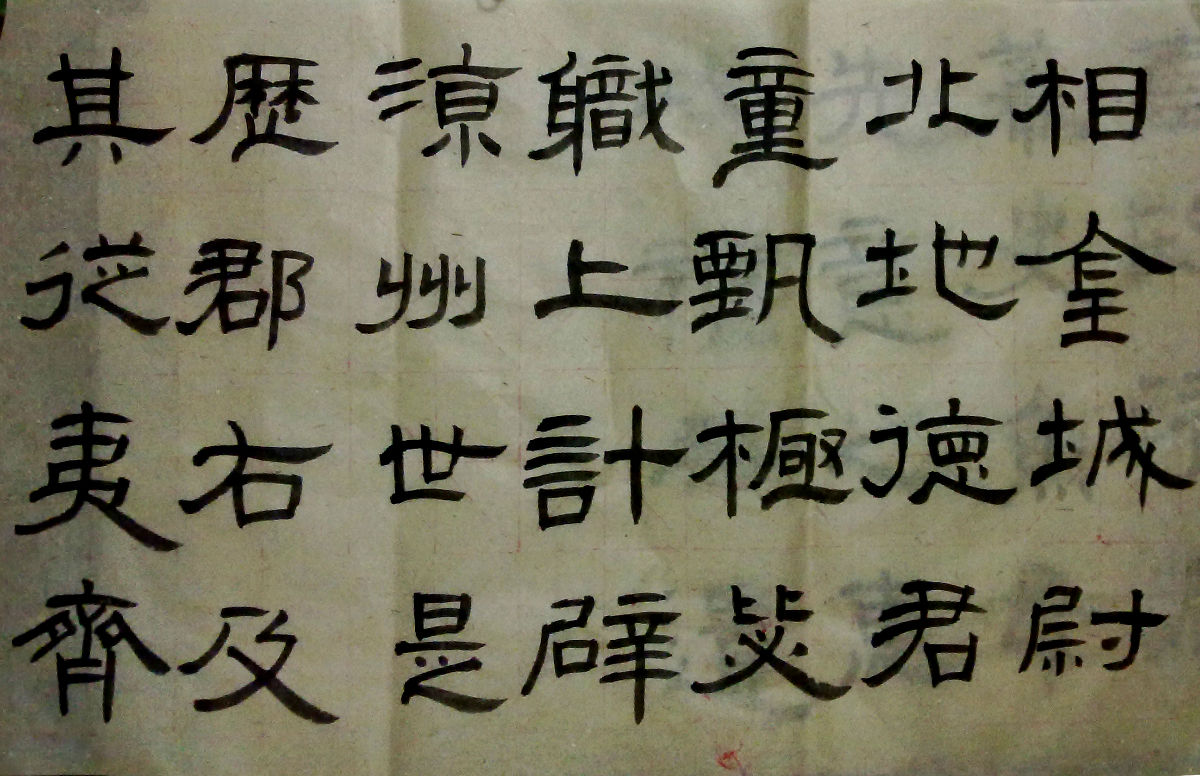 相金城尉
北地德君
童甄極毖
職上計辟
涼州世是
歷郡右及
其從夷齊